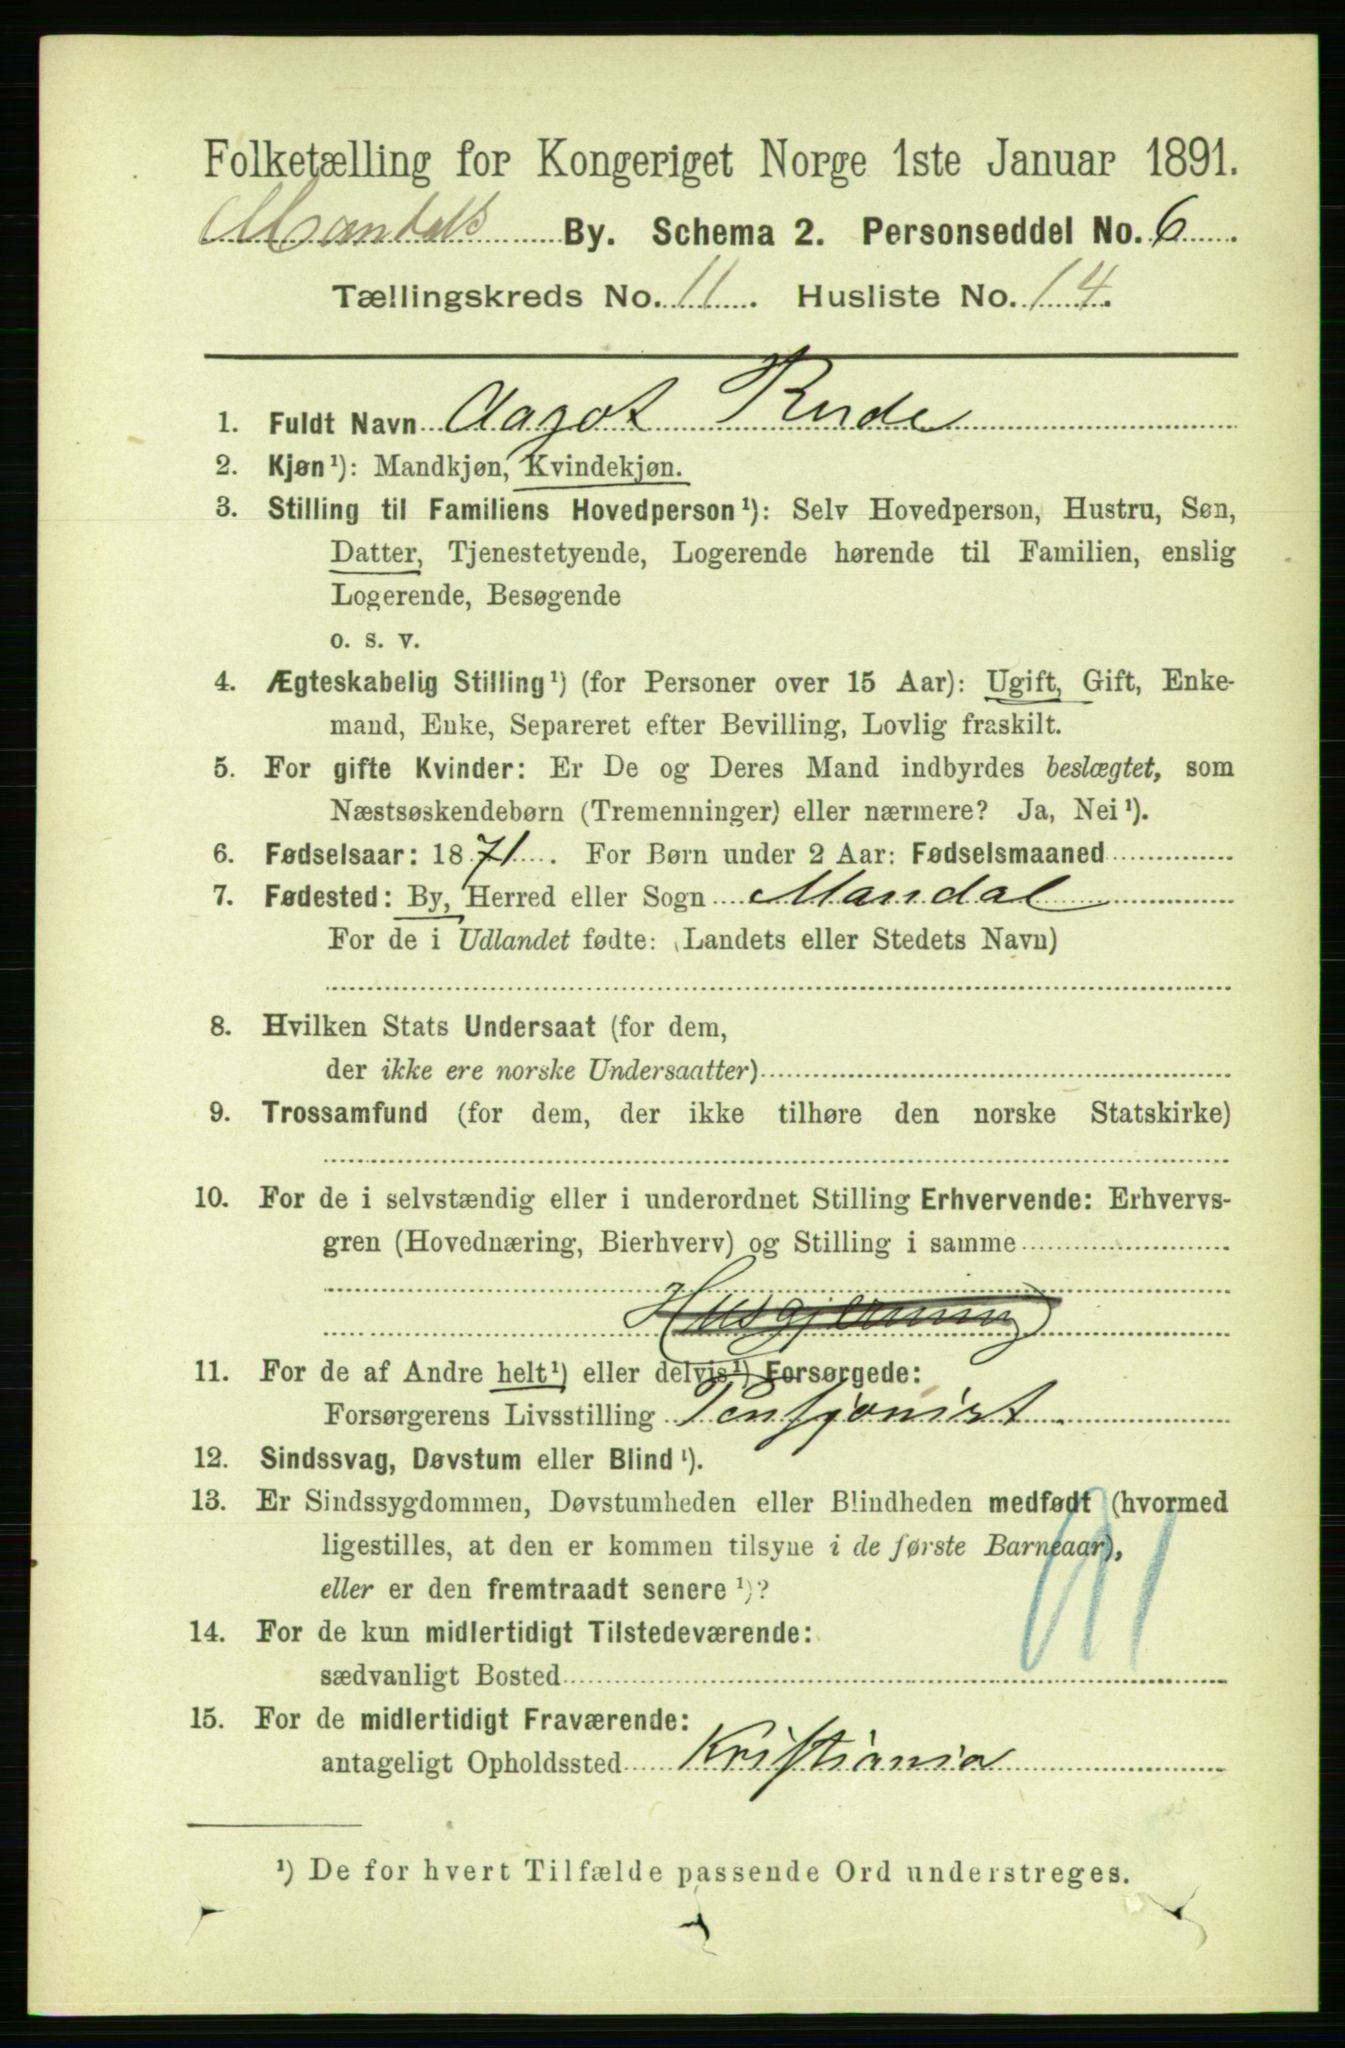 Folketælling for Kongeriget Norge 1ste Januar 1891.
Mandals By. Schema 2. Personseddel No. 6
Tællingskreds No. 11. Husliste No. 14.
1. Fuldt Navn Aagot Rude
2. Kjøn¹): Mandkjøn, Kvindekjøn.
3. Stilling til Familiens Hovedperson¹): Selv Hovedperson, Hustru, Søn,
Datter, Tjenestetyende, Logerende hørende til Familien, enslig
Logerende, Besøgende
o. s. v.
4. Ægteskabelig Stilling¹) (for Personer over 15 Aar): Ugift, Gift, Enke-
mand, Enke, Separeret efter Bevilling, Lovlig fraskilt.
5. For gifte Kvinder: Er De og Deres Mand indbyrdes beslægtet, som
Næstsøskendebørn (Tremenninger) eller nærmere? Ja, Nei¹).
6. Fødselsaar: 1871. For Børn under 2 Aar: Fødselsmaaned
7. Fødested: By, Herred eller Sogn Mandal
For de i Udlandet fødte: (Landets eller Stedets Navn)
8. Hvilken Stats Undersaat (for dem,
der ikke ere norske Undersaatter)
9. Trossamfund (for dem, der ikke tilhøre den norske Statskirke)
10. For de i selvstændig eller i underordnet Stilling Erhvervende: Erhvervs-
gren (Hovednæring, Bierhverv) og Stilling i samme
Husgjerning
11. For de af Andre helt¹) eller delvis¹) Forsørgede:
Forsørgerens Livsstilling Pensjonist
12. Sindssvag, Døvstum eller Blind¹).
13. Er Sindssygdommen, Døvstumheden eller Blindheden medfødt (hvormed
ligestilles, at den er kommen tilsyne i de første Barneaar),
eller er den fremtraadt senere¹)?
14. For de kun midlertidigt Tilstedeværende:
sædvanligt Bosted
15. For de midlertidigt Fraværende:
antageligt Opholdssted Kristiania
¹) De for hvert Tilfælde passende Ord understreges.